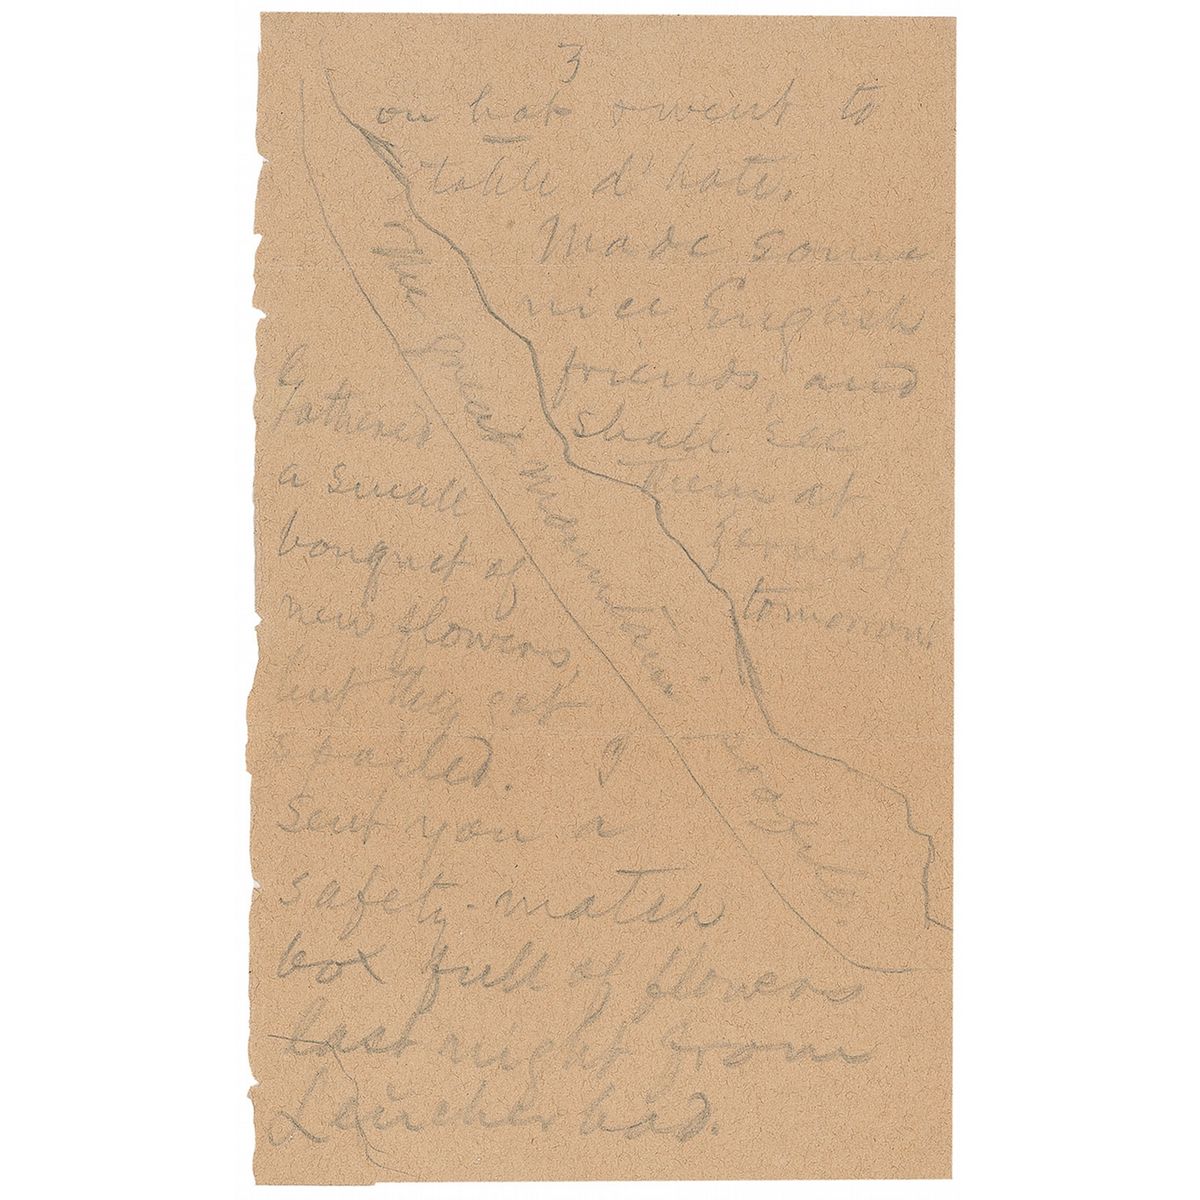 3
on hat & went to
table d'hote.
Made some
nice English
friends, and
shall see
them at
Zermat
tomorrow.
The Great Mountain
Gathered
a small
bouquet of
new flowers,
but they got
spoiled. I
sent you a
safety-match
box full of flowers
last night from
Leucherbad.